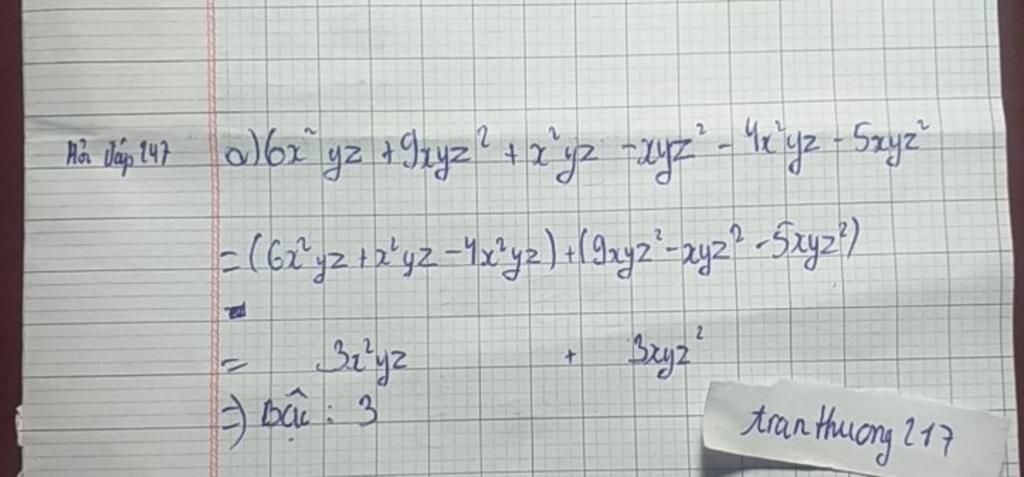 Hỏi đáp 247
a) 6x²yz + 9xyz² + x²yz - xyz² - 4x²yz - 5xyz²
= (6x²yz + x²yz - 4x²yz) + (9xyz² - xyz² - 5xyz²)
= 3x²yz + 3xyz²
=> Bậc : 3
tranthuong217